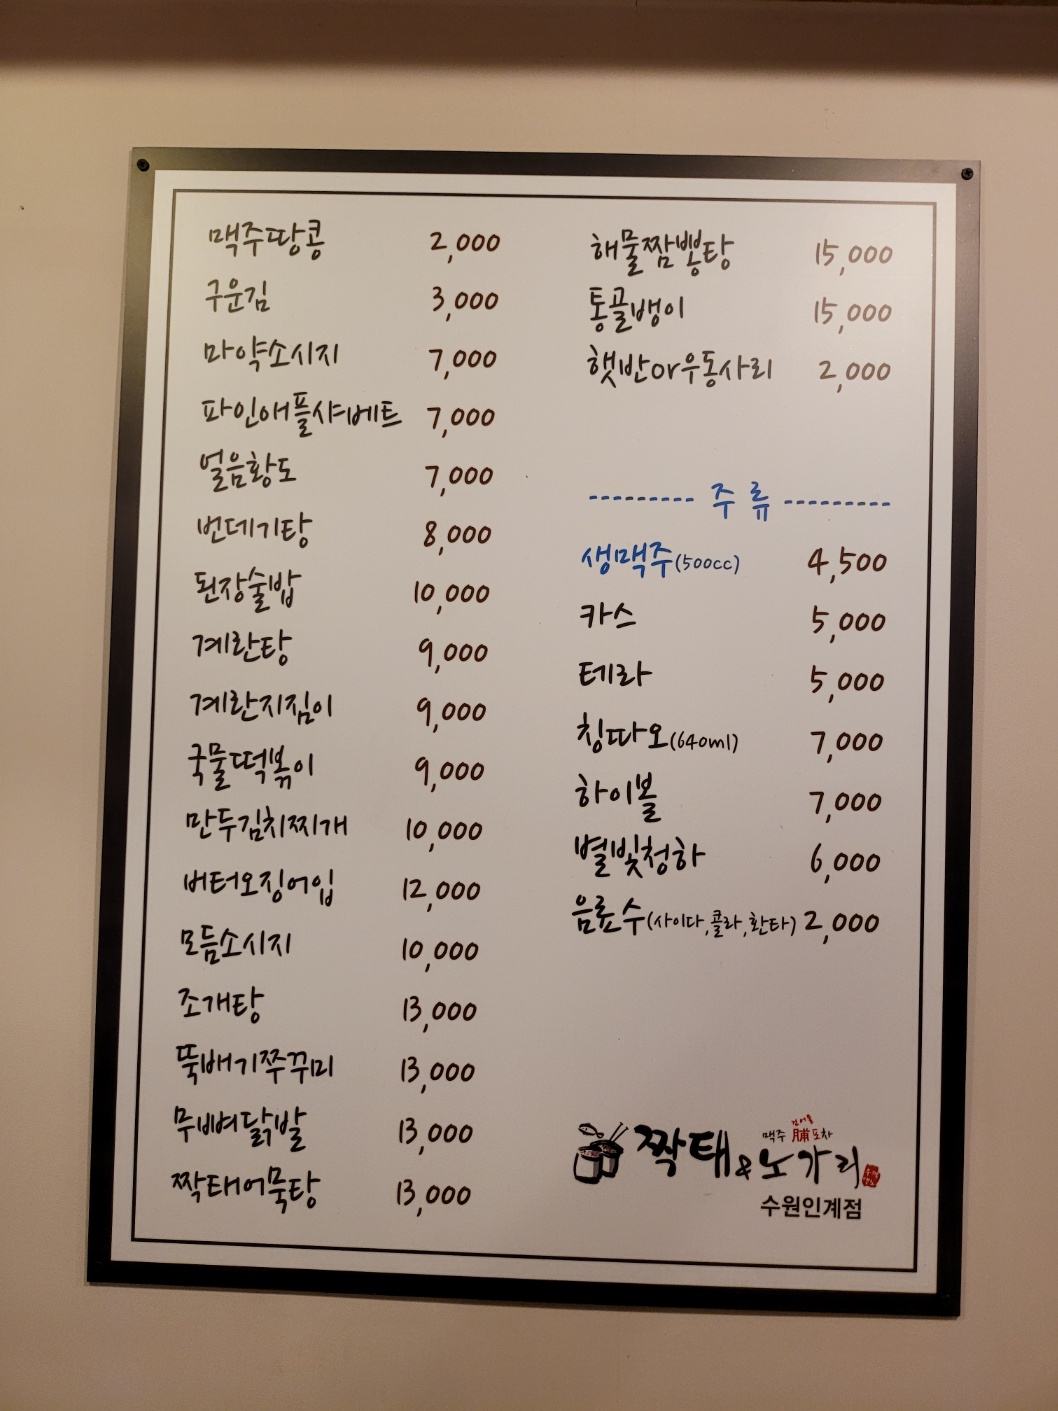 맥주땅콩 2,000
구운김 3,000
마약소시지 7,000
파인애플샤베트 7,000
얼음황도 7,000
번데기탕 8,000
된장술밥 10,000
계란탕 9,000
계란지짐이 9,000
국물떡볶이 9,000
만두김치찌개 10,000
버터오징어입 12,000
모듬소시지 10,000
조개탕 13,000
뚝배기쭈꾸미 13,000
무뼈닭발 13,000
짝태어묵탕 13,000
해물짬뽕탕 15,000
통골뱅이 15,000
햇반or우동사리 2,000
--------- 주 류 ---------
생맥주(500cc) 4,500
카스 5,000
테라 5,000
칭따오(640ml) 7,000
하이볼 7,000
별빛청하 6,000
음료수(사이다,콜라,환타) 2,000
맥주 脯 포차
짝태&노가리
수원인계점